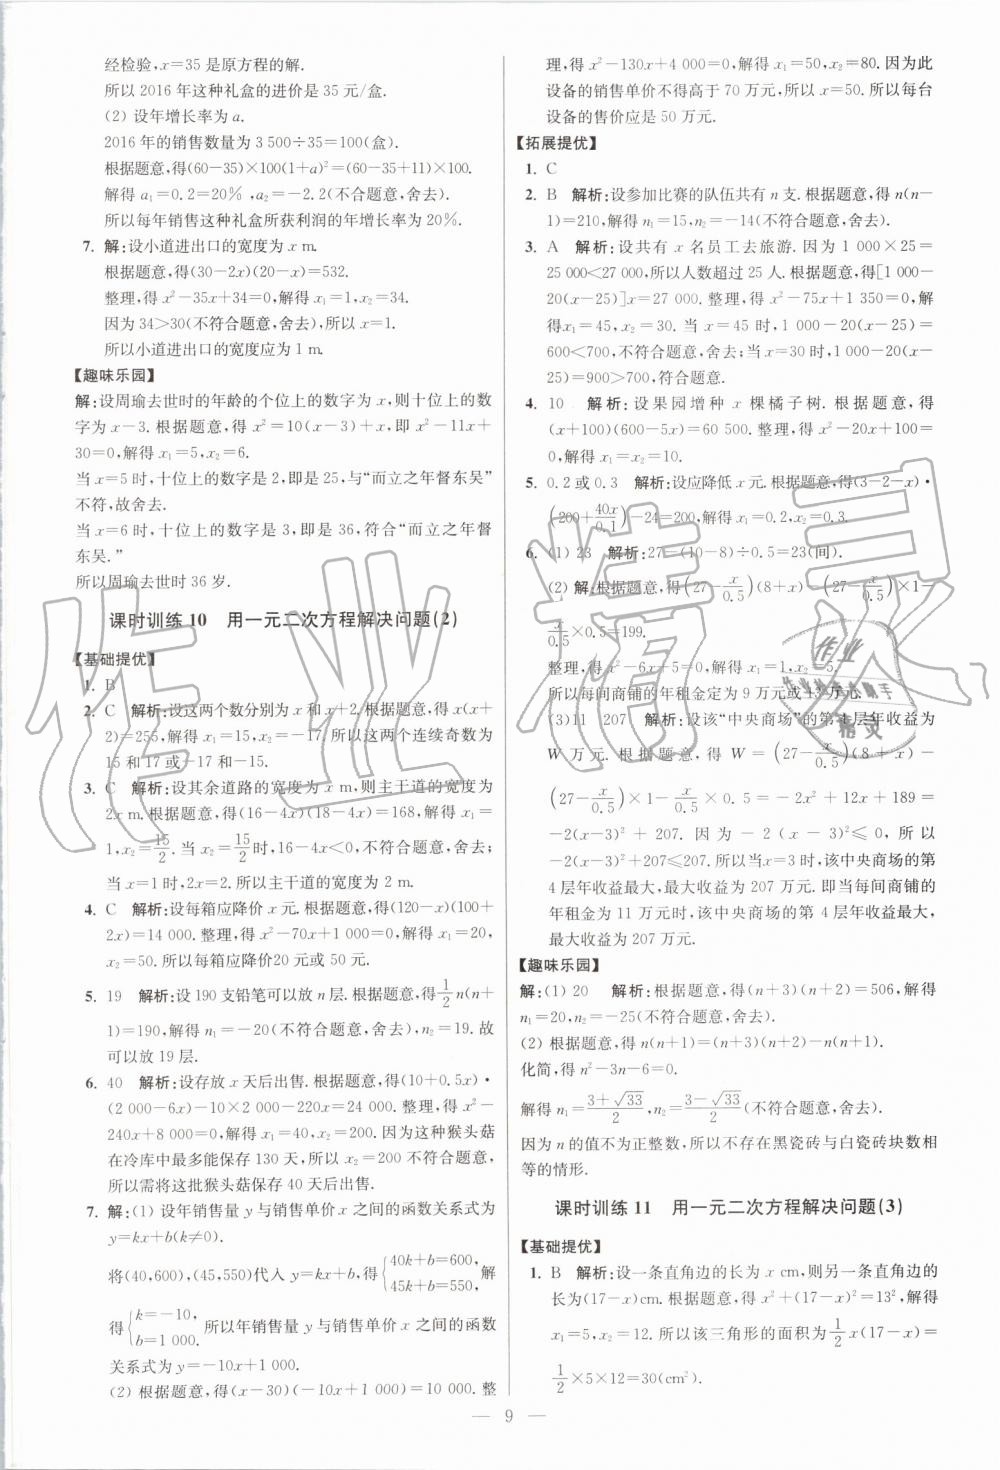 经检验,x=35是原方程的解.
所以2016年这种礼盒的进价是35元/盒.
(2) 设年增长率为a.
2016年的销售数量为3 500÷35=100(盒).
根据题意,得(60-35)×100(1+a)²=(60-35+11)×100.
解得a₁=0.2=20%,a₂=-2.2(不合题意,舍去).
所以每年销售这种礼盒所获利润的年增长率为20%.
7. 解:设小道进出口的宽度为x m.
根据题意,得(30-2x)(20-x)=532.
整理,得x²-35x+34=0,解得x₁=1,x₂=34.
因为34>30(不符合题意,舍去),所以x=1.
所以小道进出口的宽度应为1 m.
【趣味乐园】
解:设周瑜去世时的年龄的个位上的数字为x,则十位上的数
字为x-3. 根据题意,得x²=10(x-3)+x,即x²-11x+
30=0,解得x₁=5,x₂=6.
当x=5时,十位上的数字是2,即是25,与“而立之年督东吴”
不符,故舍去.
当x=6时,十位上的数字是3,即是36,符合“而立之年督
东吴.”
所以周瑜去世时36岁.
课时训练10 用一元二次方程解决问题(2)
【基础提优】
1. B
2. C 解析:设这两个数分别为x和x+2.根据题意,得x(x+
2)=255,解得x₁=15,x₂=-17.所以这两个连续奇数为
15和17或-17和-15.
3. C 解析:设其余道路的宽度为x m,则主干道的宽度为
2x m.根据题意,得(16-4x)(18-4x)=168,解得x₁=
1,x₂=15/2.当x₂=15/2时,16-4x<0,不符合题意,舍去;
当x=1时,2x=2.所以主干道的宽度为2 m.
4. C 解析:设每箱应降价x元.根据题意,得(120-x)(100+
2x)=14 000.整理,得x²-70x+1 000=0,解得x₁=20,
x₂=50.所以每箱应降价20元或50元.
5. 19 解析:设190支铅笔可以放n层.根据题意,得1/2n(n+
1)=190,解得n₁=-20(不符合题意,舍去),n₂=19.故
可以放19层.
6. 40 解析:设存放x天后出售.根据题意,得(10+0.5x)·
(2 000-6x)-10×2 000-220x=24 000. 整理,得x²-
240x+8 000=0,解得x₁=40,x₂=200.因为这种猴头菇
在冷库中最多能保存130天,所以x₂=200不符合题意.
所以需将这批猴头菇保存40天后出售.
7. 解:(1) 设年销售量y与销售单价x之间的函数关系式为
y=kx+b(k≠0).
将(40,600),(45,550)代入y=kx+b,得{40k+b=600, 45k+b=550,解
得{k=-10, b=1 000.所以年销售量y与销售单价x之间的函数
关系式为y=-10x+1 000.
(2) 根据题意,得(x-30)(-10x+1 000)=10 000. 整
理,得x²-130x+4 000=0,解得x₁=50,x₂=80.因为此
设备的销售单价不得高于70万元,所以x=50.所以每台
设备的售价应是50万元.
【拓展提优】
1. C
2. B 解析:设参加比赛的队伍共有n支.根据题意,得n(n-
1)=210,解得n₁=15,n₂=-14(不符合题意,舍去).
3. A 解析:设共有x名员工去旅游. 因为1 000×25=
25 000<27 000,所以人数超过25人.根据题意,得[1 000-
20(x-25)]x=27 000. 整理,得x²-75x+1 350=0,解
得x₁=45,x₂=30. 当x=45时,1 000-20(x-25)=
600<700,不符合题意,舍去;当x=30时,1 000-20(x-
25)=900>700,符合题意.
4. 10 解析:设果园增种x棵橘子树. 根据题意,得
(x+100)(600-5x)=60 500. 整理,得x²-20x+100=
0,解得x₁=x₂=10.
5. 0.2或0.3 解析:设应降低x元.根据题意,得(3-2-x)·
(200+40x/0.1)-24=200,解得x₁=0.2,x₂=0.3.
6. (1) 23 解析:27-(10-8)÷0.5=23(间).
(2) 解:根据题意,得(27-x/0.5)(8+x)-(27-x/0.5)×1-
x/0.5×0.5=199.
整理,得x²-6x+5=0,解得x₁=1,x₂=5.
所以每间商铺的年租金定为9万元或13万元.
(3)11 207 解析:设该“中央商场”的第4层年收益为
W万元. 根据题意,得W=(27-x/0.5)(8+x)-
(27-x/0.5)×1-x/0.5×0.5=-2x²+12x+189=
-2(x-3)²+207. 因为-2(x-3)²≤0,所以
-2(x-3)²+207≤207.所以当x=3时,该中央商场的第
4层年收益最大,最大为207万元. 即当每间商铺的
年租金为11万元时,该中央商场的第4层年收益最大,
最大收益为207万元.
【趣味乐园】
解:(1) 20 解析:根据题意,得(n+3)(n+2)=506,解得
n₁=20,n₂=-25(不符合题意,舍去).
(2) 根据题意,得n(n+1)=(n+3)(n+2)-n(n+1).
化简,得n²-3n-6=0.
解得n₁=(3+√33)/2,n₂=(3-√33)/2(不符合题意,舍去).
因为n的值不为正整数,所以不存在黑瓷砖与白瓷砖块数相
等的情形.
课时训练11 用一元二次方程解决问题(3)
【基础提优】
1. B 解析:设一条直角边的长为x cm,则另一条直角边的
长为(17-x)cm.根据题意,得x²+(17-x)²=13²,解得
x₁=5,x₂=12.所以该三角形的面积为1/2x(17-x)=
1/2×5×12=30(cm²).
— 9 —
作业精灵
作业
精灵